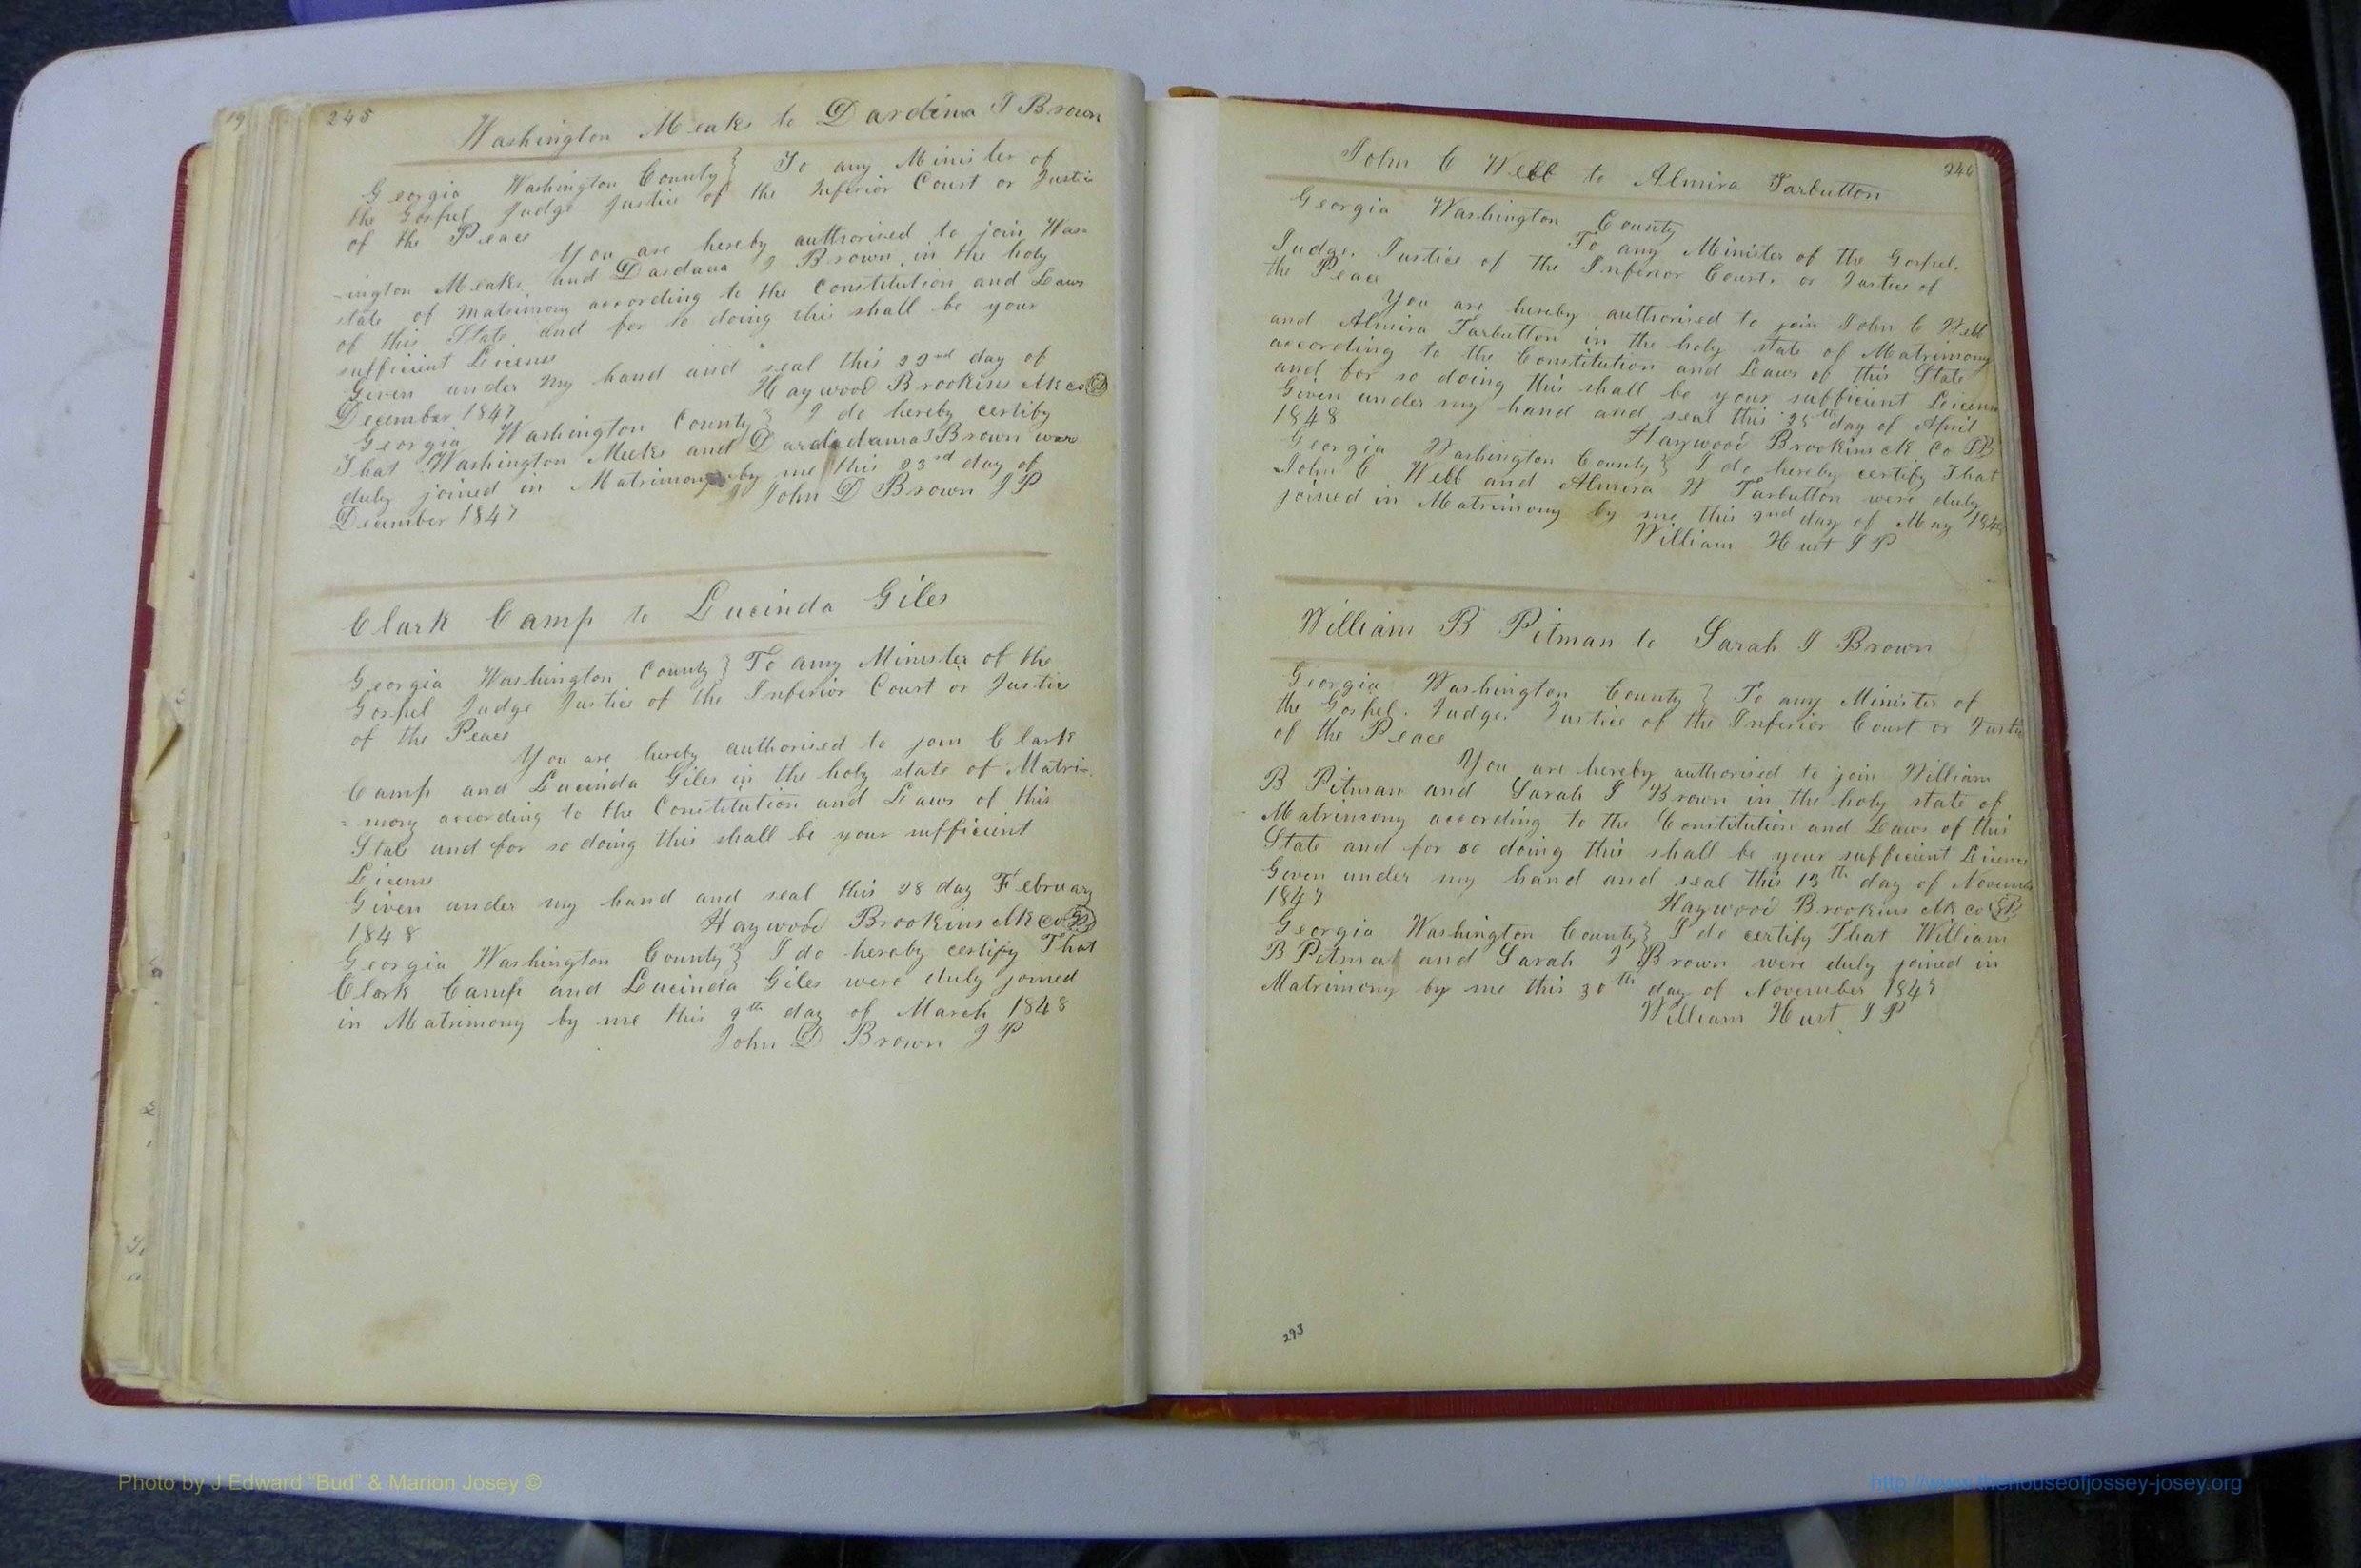 19
245
Washington Meaks to Dardina J Brown
Georgia Washington County } To any Minister of
the Gospel Judge Justice of the Inferior Court or Justi
of the Peace
You are hereby authorised to join Was-
-ington Meaks and Dardana J Brown in the holy
state of Matrimony according to the Constitution and Laws
of this State and for so doing this shall be your
sufficient License
Given under my hand and seal this 22nd day of
December 1847
Haywood Brookins Clk co
Georgia Washington County } I do hereby certify
That Washington Meeks and Dardadama J Brown were
duly joined in Matrimony by me this 23rd day of
December 1847
John D Brown J P
Clark Camp to Lucinda Giles
Georgia Washington County } To any Minister of the
Gospel Judge Justice of the Inferior Court or Justice
of the Peace
You are hereby authorised to join Clark
Camp and Lucinda Giles in the holy state of Matri-
=mony according to the Constitution and Laws of this
State and for so doing this shall be your sufficient
License
Given under my hand and seal this 28 day February
1848
Haywood Brookins Clk co
Georgia Washington County } I do hereby certify That
Clark Camp and Lucinda Giles were duly joined
in Matrimony by me this 9th day of March 1848
John D Brown J P
246
John C Webb to Almira Tarbutton
Georgia Washington County
To any Minister of the Gospel.
Judge. Justice of the Inferior Court. or Justice of
the Peace
You are hereby authorised to join John C Webb
and Almira Tarbutton in the holy state of Matrimony
according to the Constitution and Laws of this State
and for so doing this shall be your sufficient License
Given under my hand and seal this 25th day of April
1848
Haywood Brookins ck co
Georgia Washington County } I do hereby certify That
John C Webb and Almira W Tarbutton were duly
joined in Matrimony by me this 2nd day of May 1848
William Hust J P
William B Pitman to Sarah J Brown
Georgia Washington County } To any Minister of
the Gospel. Judge. Justice of the Inferior Court or Justi
of the Peace
You are hereby authorised to join William
B Pitman and Sarah J Brown in the holy state of
Matrimony according to the Constitution and Laws of this
State and for so doing this shall be your sufficient License
Given under my hand and seal this 13th day of Novem
1847
Haywood Brookins Clk co
Georgia Washington County } I do certify That William
B Pitman and Sarah J Brown were duly joined in
Matrimony by me this 30th day of November 1847
William Hust J P
293
Photo by J Edward “Bud” & Marion Josey ©
http://www.thehouseofjossey-josey.org